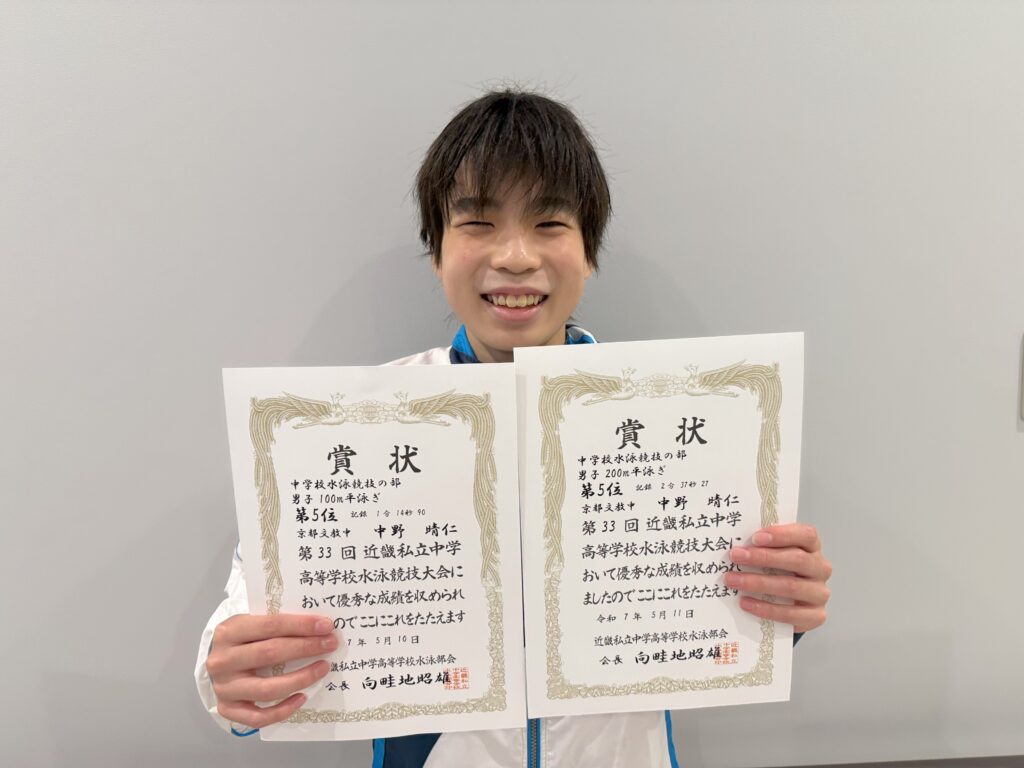 賞 状
中学校水泳競技の部
男子 100m平泳ぎ
第5位 記録 1分 14秒 90
京都文教中 中野 晴仁
第 33 回 近畿私立中学
高等学校水泳競技大会に
おいて優秀な成績を収められ
のでここにこれをたたえます
7年 5月 10日
畿私立中学高等学校水泳部会
会長 向畦地昭雄
賞 状
中学校水泳競技の部
男子 200m平泳ぎ
第5位 記録 2分 37秒 27
京都文教中 中野 晴仁
第 33 回 近畿私立中学
高等学校水泳競技大会に
おいて優秀な成績を収められ
ましたのでここにこれをたたえます
令和 7年 5月 11日
近畿私立中学高等学校水泳部会
会長 向畦地昭雄